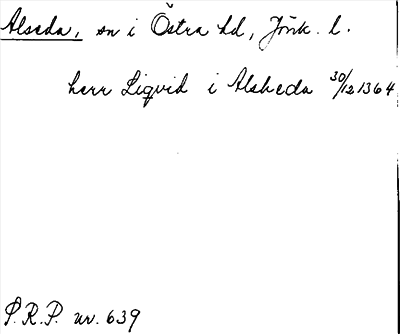 Alseda, sn i Östra hd, Jönk. l.
herr Liqvid i Alsheda 30/12 1364
S.R.P. nr. 639